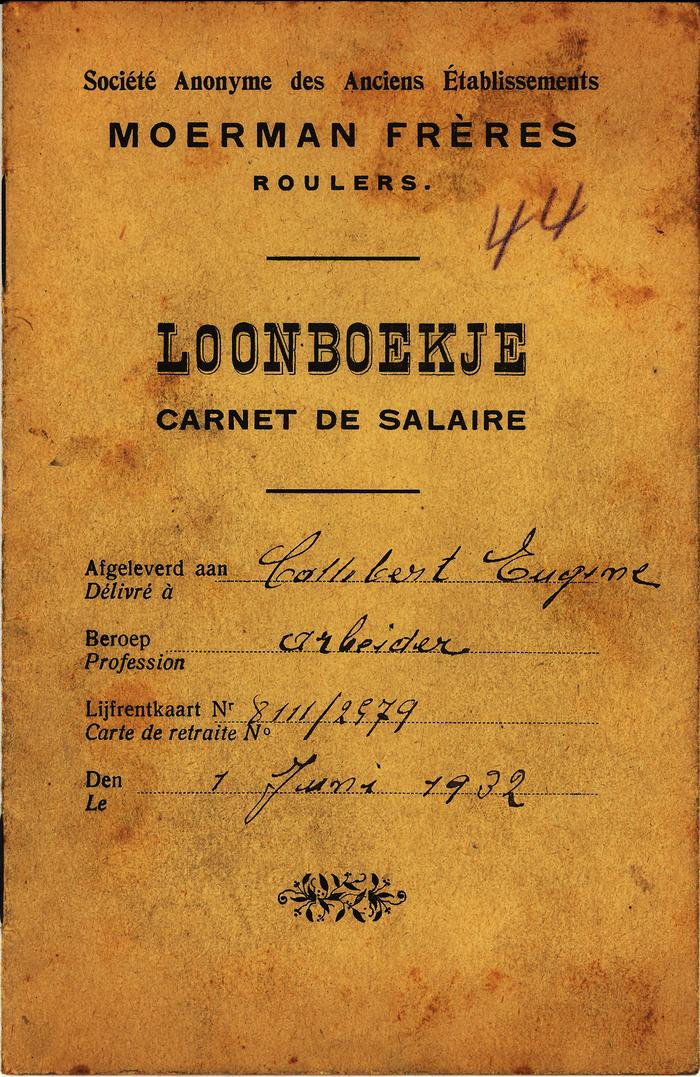 Société Anonyme des Anciens Établissements
MOERMAN FRÈRES
ROULERS.
44
LOONBOEKJE
CARNET DE SALAIRE
Afgeleverd aan Eugène
Délivré à
Beroep arbeider
Profession
Lijfrentkaart Nr 8111/2979
Carte de retraite No
Den 1 Juni 1932
Le